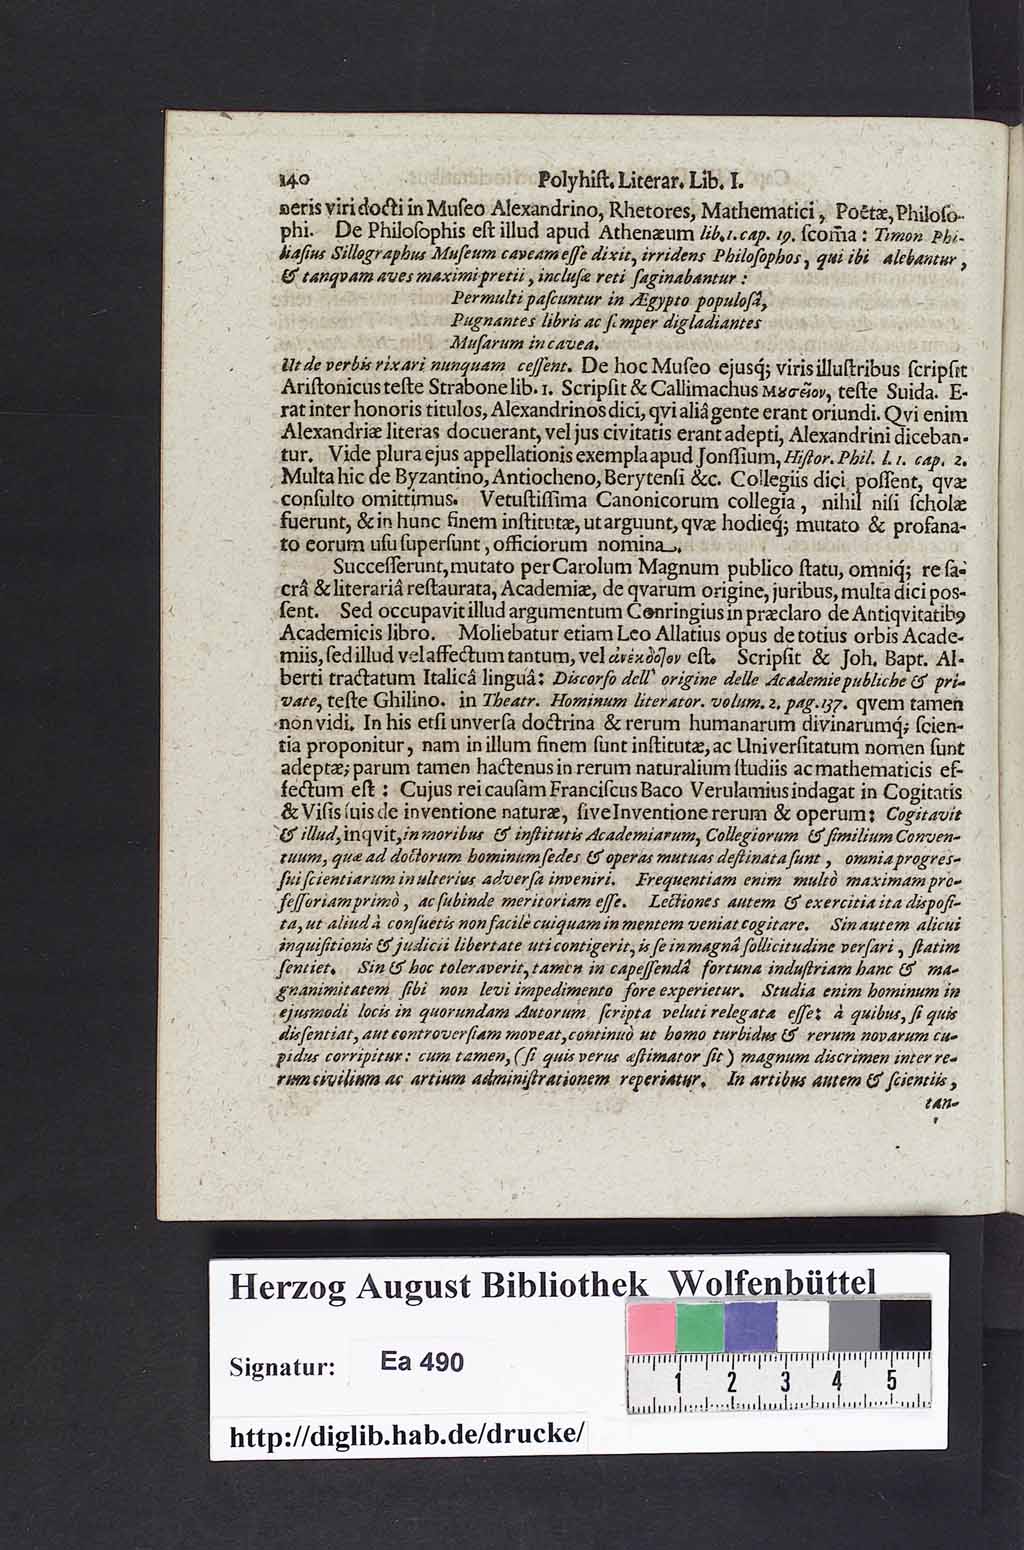 140 Polyhiſt. Literar. Lib. I.
neris viri docti in Muſeo Alexandrino, Rhetores, Mathematici, Poëtæ, Philoſo-
phi. De Philoſophis eſt illud apud Athenæum lib. 1. cap. 19. ſcom̃a: Timon Phi-
liaſius Sillographus Muſeum caveam eſſe dixit, irridens Philoſophos, qui ibi alebantur,
& tanqvam aves maximi pretii, incluſæ reti ſaginabantur:
Permulti paſcuntur in Ægypto populoſâ,
Pugnantes libris ac ſemper digladiantes
Muſarum in cavea.
Ut de verbis rixari nunquam ceſſent. De hoc Muſeo ejusq́; viris illuſtribus ſcripſit
Ariſtonicus teſte Strabone lib. 1. Scripſit & Callimachus Μȣσεῖον, teſte Suida. E-
rat inter honoris titulos, Alexandrinos dici, qvi aliâ gente erant oriundi. Qvi enim
Alexandriæ literas docuerant, vel jus civitatis erant adepti, Alexandrini diceban-
tur. Vide plura ejus appellationis exempla apud Jonſſium, Hiſtor. Phil. l. 1. cap. 2.
Multa hic de Byzantino, Antiocheno, Berytenſi &c. Collegiis dici poſſent, qvæ
conſulto omittimus. Vetuſtiſſima Canonicorum collegia, nihil niſi ſcholæ
fuerunt, & in hunc finem inſtitutæ, ut arguunt, qvæ hodieq́; mutato & profana-
to eorum uſu ſuperſunt, officiorum nomina.
Succeſſerunt, mutato per Carolum Magnum publico ſtatu, omniq́; re ſa-
crâ & literariâ reſtaurata, Academiæ, de qvarum origine, juribus, multa dici poſ-
ſent. Sed occupavit illud argumentum Conringius in præclaro de Antiqvitatibꝰ
Academicis libro. Moliebatur etiam Leo Allatius opus de totius orbis Acade-
miis, ſed illud vel affectum tantum, vel ἀνέκδοτον eſt. Scripſit & Joh. Bapt. Al-
berti tractatum Italicâ linguâ: Discorſo dell' origine delle Academie publiche & pri-
vate, teſte Ghilino. in Theatr. Hominum literator. volum. 2. pag. 137. qvem tamen
non vidi. In his etſi unverſa doctrina & rerum humanarum divinarumq́; ſcien-
tia proponitur, nam in illum finem ſunt inſtitutæ, ac Univerſitatum nomen ſunt
adeptæ; parum tamen hactenus in rerum naturalium ſtudiis ac mathematicis ef-
fectum eſt: Cujus rei cauſam Franciſcus Baco Verulamius indagat in Cogitatis
& Viſis ſuis de inventione naturæ, ſive Inventione rerum & operum: Cogitavit
& illud, inqvit, in moribus & inſtitutis Academiarum, Collegiorum & ſimilium Conven-
tuum, quæ ad doctorum hominum ſedes & operas mutuas deſtinata ſunt, omnia progres-
ſui ſcientiarum in ulterius adverſa inveniri. Frequentiam enim multò maximam pro-
feſſoriam primò, ac ſubinde meritoriam eſſe. Lectiones autem & exercitia ita dispoſi-
ta, ut aliud à conſuetis non facilè cuiquam in mentem veniat cogitare. Sin autem alicui
inquiſitionis & judicii libertate uti contigerit, is ſe in magnâ ſollicitudine verſari, ſtatim
ſentiet. Sin & hoc toleraverit, tamen in capeſſendâ fortuna induſtriam hanc & ma-
gnanimitatem ſibi non levi impedimento fore experietur. Studia enim hominum in
ejusmodi locis in quorundam Autorum ſcripta veluti relegata eſſe: à quibus, ſi quis
disſentiat, aut controverſiam moveat, continuò ut homo turbidus & rerum novarum cu-
pidus corripitur: cum tamen, (ſi quis verus æſtimator ſit) magnum discrimen inter re-
rum civilium ac artium adminiſtrationem reperiatur. In artibus autem & ſcientiis,
tan-
Herzog August Bibliothek Wolfenbüttel
Signatur: Ea 490
1 2 3 4 5
http://diglib.hab.de/drucke/